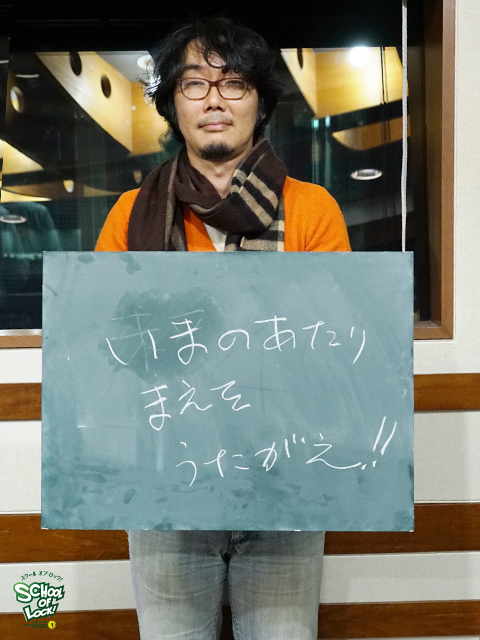 いまのあたり
まえを
うたがえ!!
スクール オブ ロック!
SCHOOL
OF
LOCK!